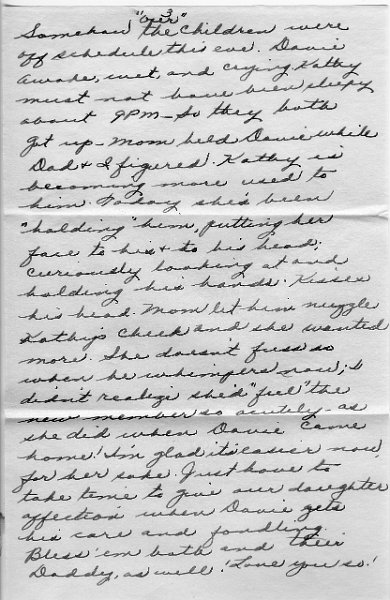 "over" 3
Somehow the children were
off schedule this eve. Davie
awake, wet, and crying. Kathy
must not have been sleepy
about 9PM - So they both
got up - Mom held Davie while
Dad & I figured. Kathy is
becoming more used to
him. Today she's been
"holding" him, putting her
face to his & to his head;
curiously looking at and
holding his hands. Kisses
his head. Mom let him nuzzle
Kathy's cheek and she wanted
more. She doesn't fuss so
when he whimpers now; I
didn't realize she'd "feel" the
new member so acutely - as
she did when Davie came
home! I'm glad it's easier now
for her sake. Just have to
take time to give our daughter
affection when Davie gets
his care and fondling.
Bless 'em both and their
Daddy, as well! Love you so!